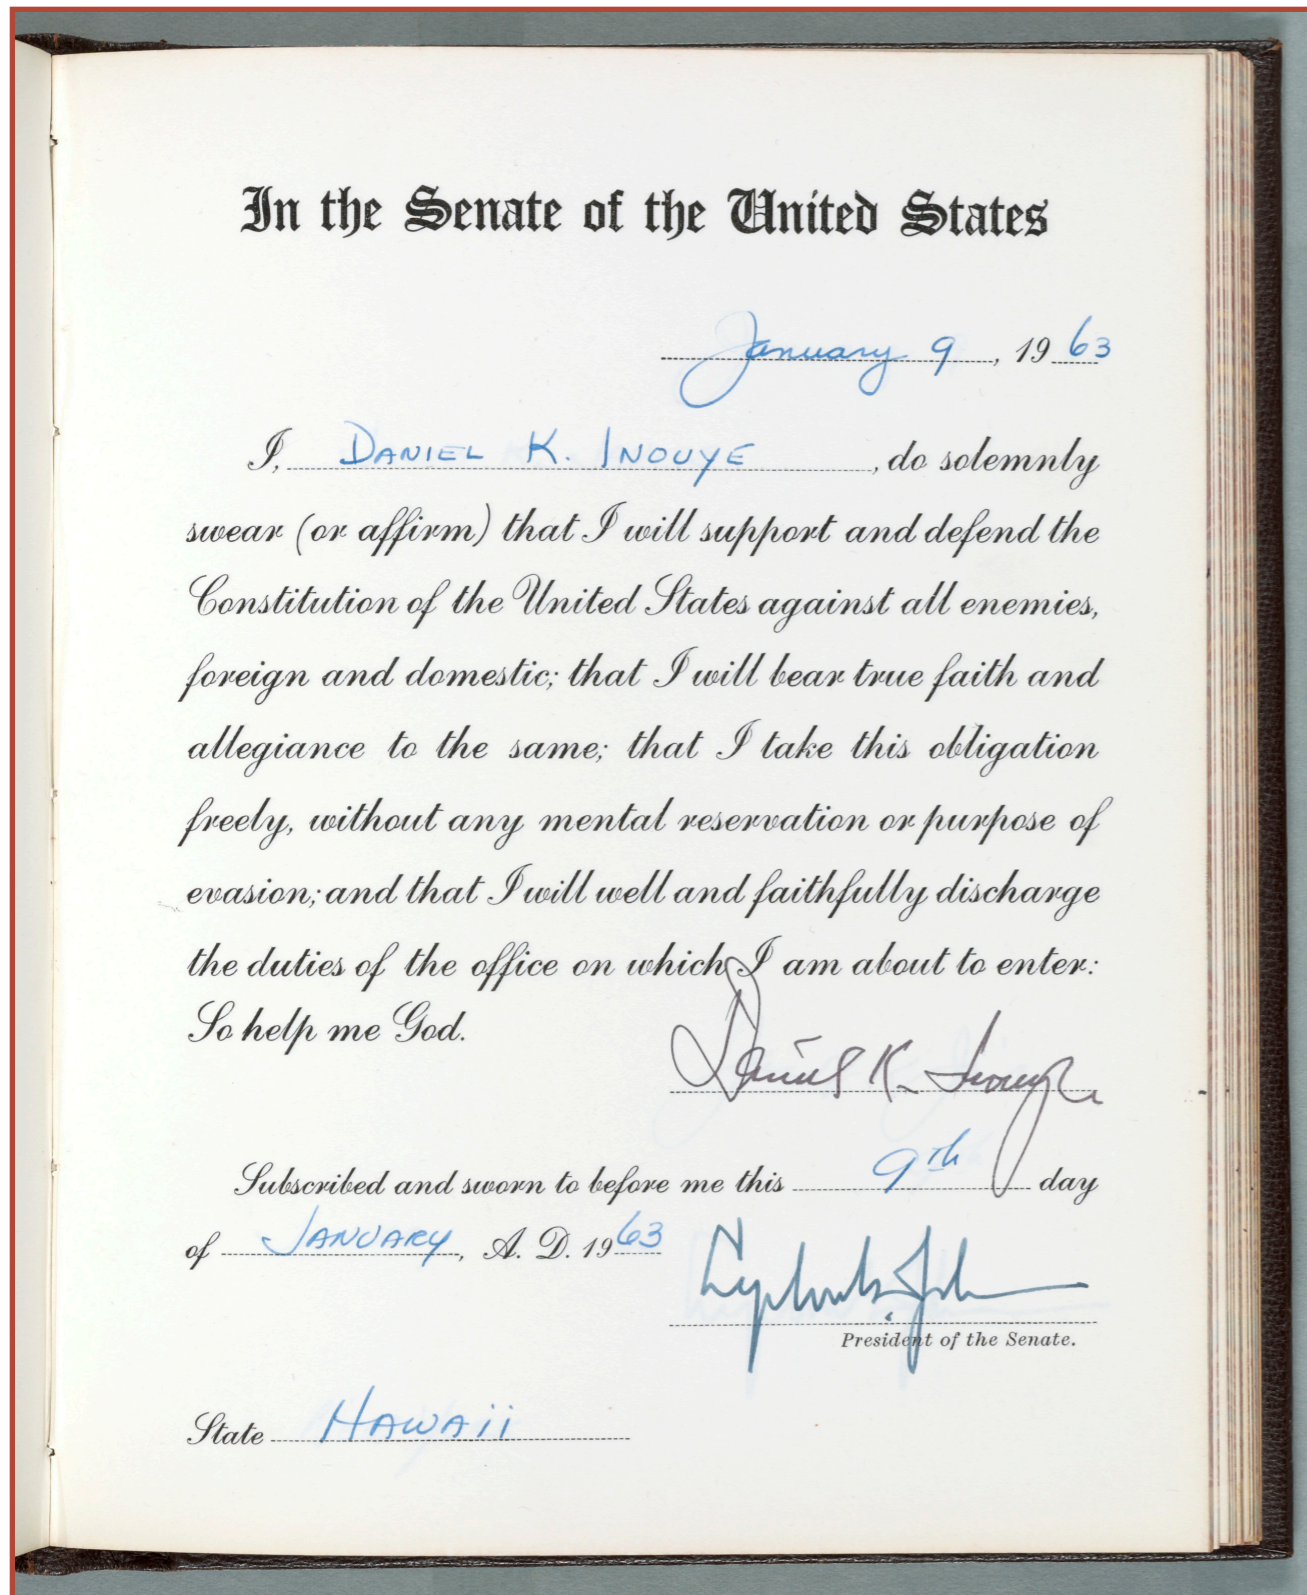 In the Senate of the United States
January 9, 1963
I, DANIEL K. INOUYE, do solemnly
swear (or affirm) that I will support and defend the
Constitution of the United States against all enemies,
foreign and domestic; that I will bear true faith and
allegiance to the same; that I take this obligation
freely, without any mental reservation or purpose of
evasion; and that I will well and faithfully discharge
the duties of the office on which I am about to enter:
So help me God.
Daniel K. Inouye
Subscribed and sworn to before me this 9th day
of JANUARY, A. D. 1963
Lyndon B. Johnson
President of the Senate.
State HAWAii